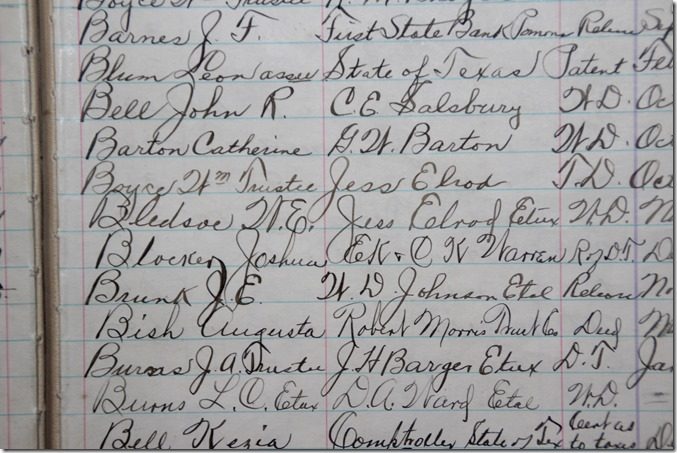 Boyce Wm Trustee
Barnes J. F. First State Bank Pomona Release Se
Blum Leon assee State of Texas Patent Fe
Bell John R. C. E. Salsbury W.D. Oc
Barton Catherine G. W. Barton W.D. Oct
Boyce Wm Trustee Jess Elrod T.D. Oct
Bledsoe W. E. Jess Elrod Etux W.D. N
Blocker Joshua E K & C K Warren D.T. De
Brunk J. E. W. D Johnson Etal Release No
Bish Augusta Robert Morris Trust Co Deed
Burns J. A. Trustee J H Barger Etux D. T. Jan
Burns L. C. Etux D. A. Ward Etal W.D. –
Bell Kezia Comptroller State of Tex Cert as to taxes De